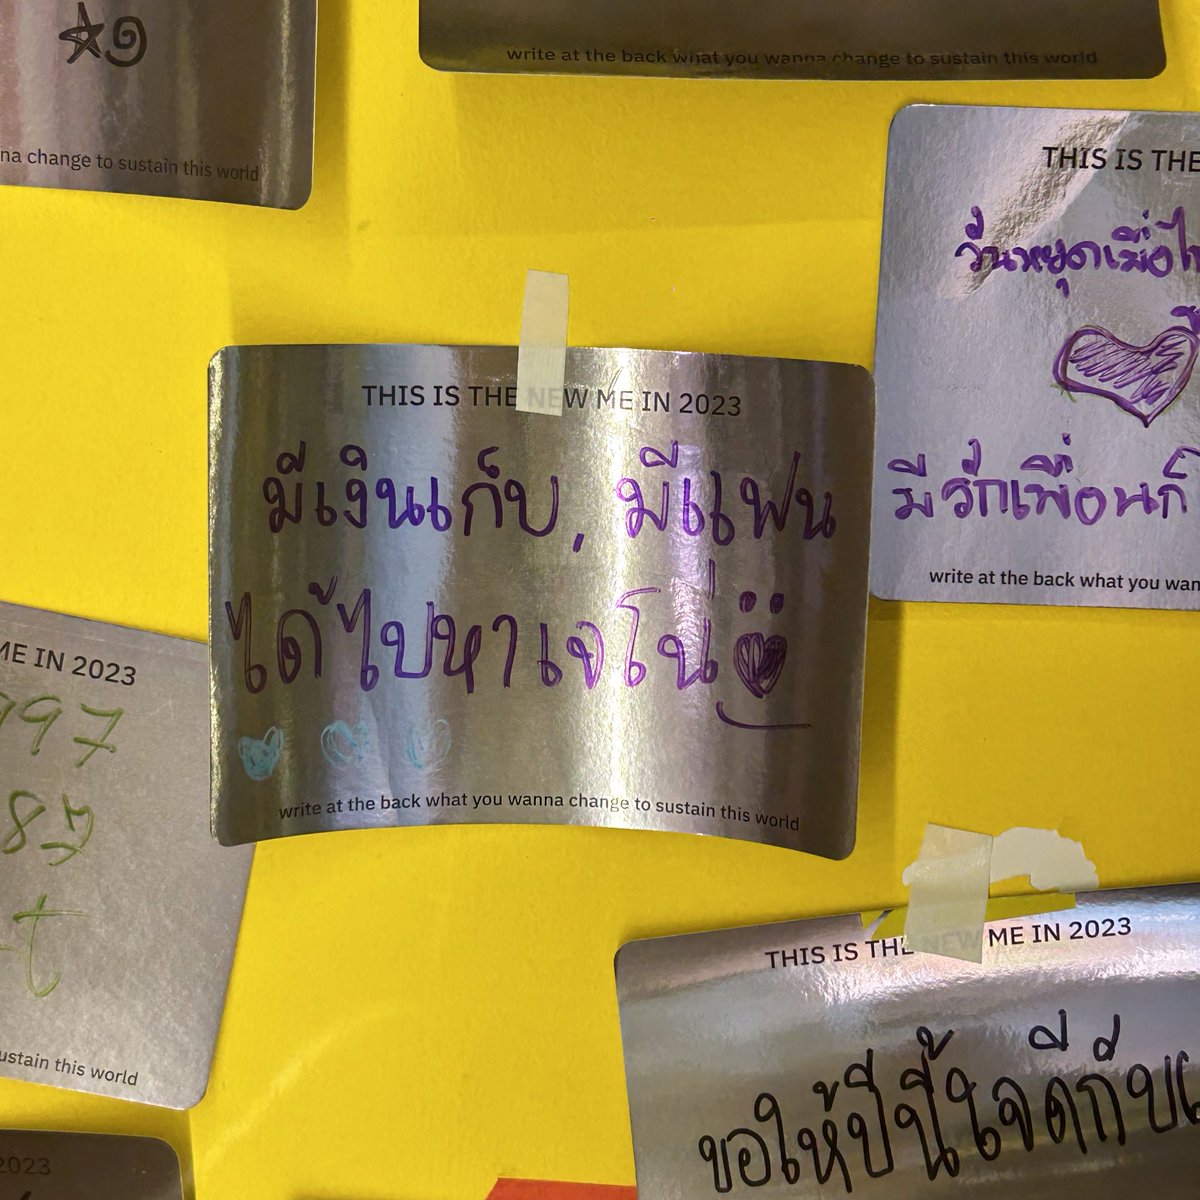 na change to sustain this world
write at the back what you wanna change to sustain this world
THIS IS THE
วันหยุดเมื่อไ
มีรักเพื่อนก็
write at the back what you wan
THIS IS THE NEW ME IN 2023
มีเงินเก็บ, มีแฟน
ได้ไปหาเจโน่
write at the back what you wanna change to sustain this world
ME IN 2023
997
ustain this world
THIS IS THE NEW ME IN 2023
ขอให้ปีนี้ใจดีกับเ
2023